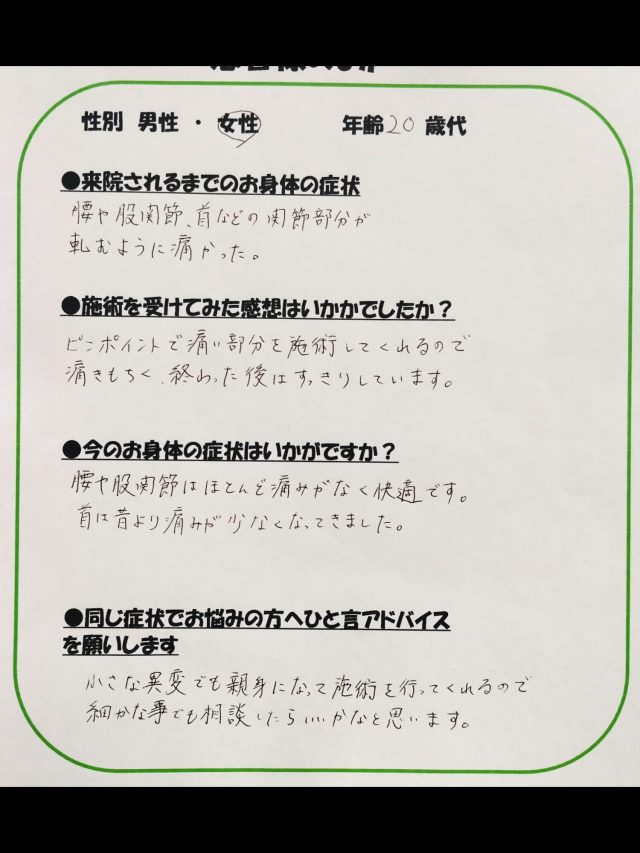 性別 男性 ・ 女性 年齢 20 歳代
●来院されるまでのお身体の症状
腰や股関節、首などの関節部分が
軋むように痛かった。
●施術を受けてみた感想はいかかでしたか？
ピンポイントで痛い部分を施術してくれるので
痛きもちく、終わった後はすっきりしています。
●今のお身体の症状はいかがですか？
腰や股関節はほとんど痛みがなく快適です。
首は昔より痛みが少なくなってきました。
●同じ症状でお悩みの方へひと言アドバイス
を願いします
小さな異変でも親身になって施術を行ってくれるので
細かな事でも相談したらいいかなと思います。